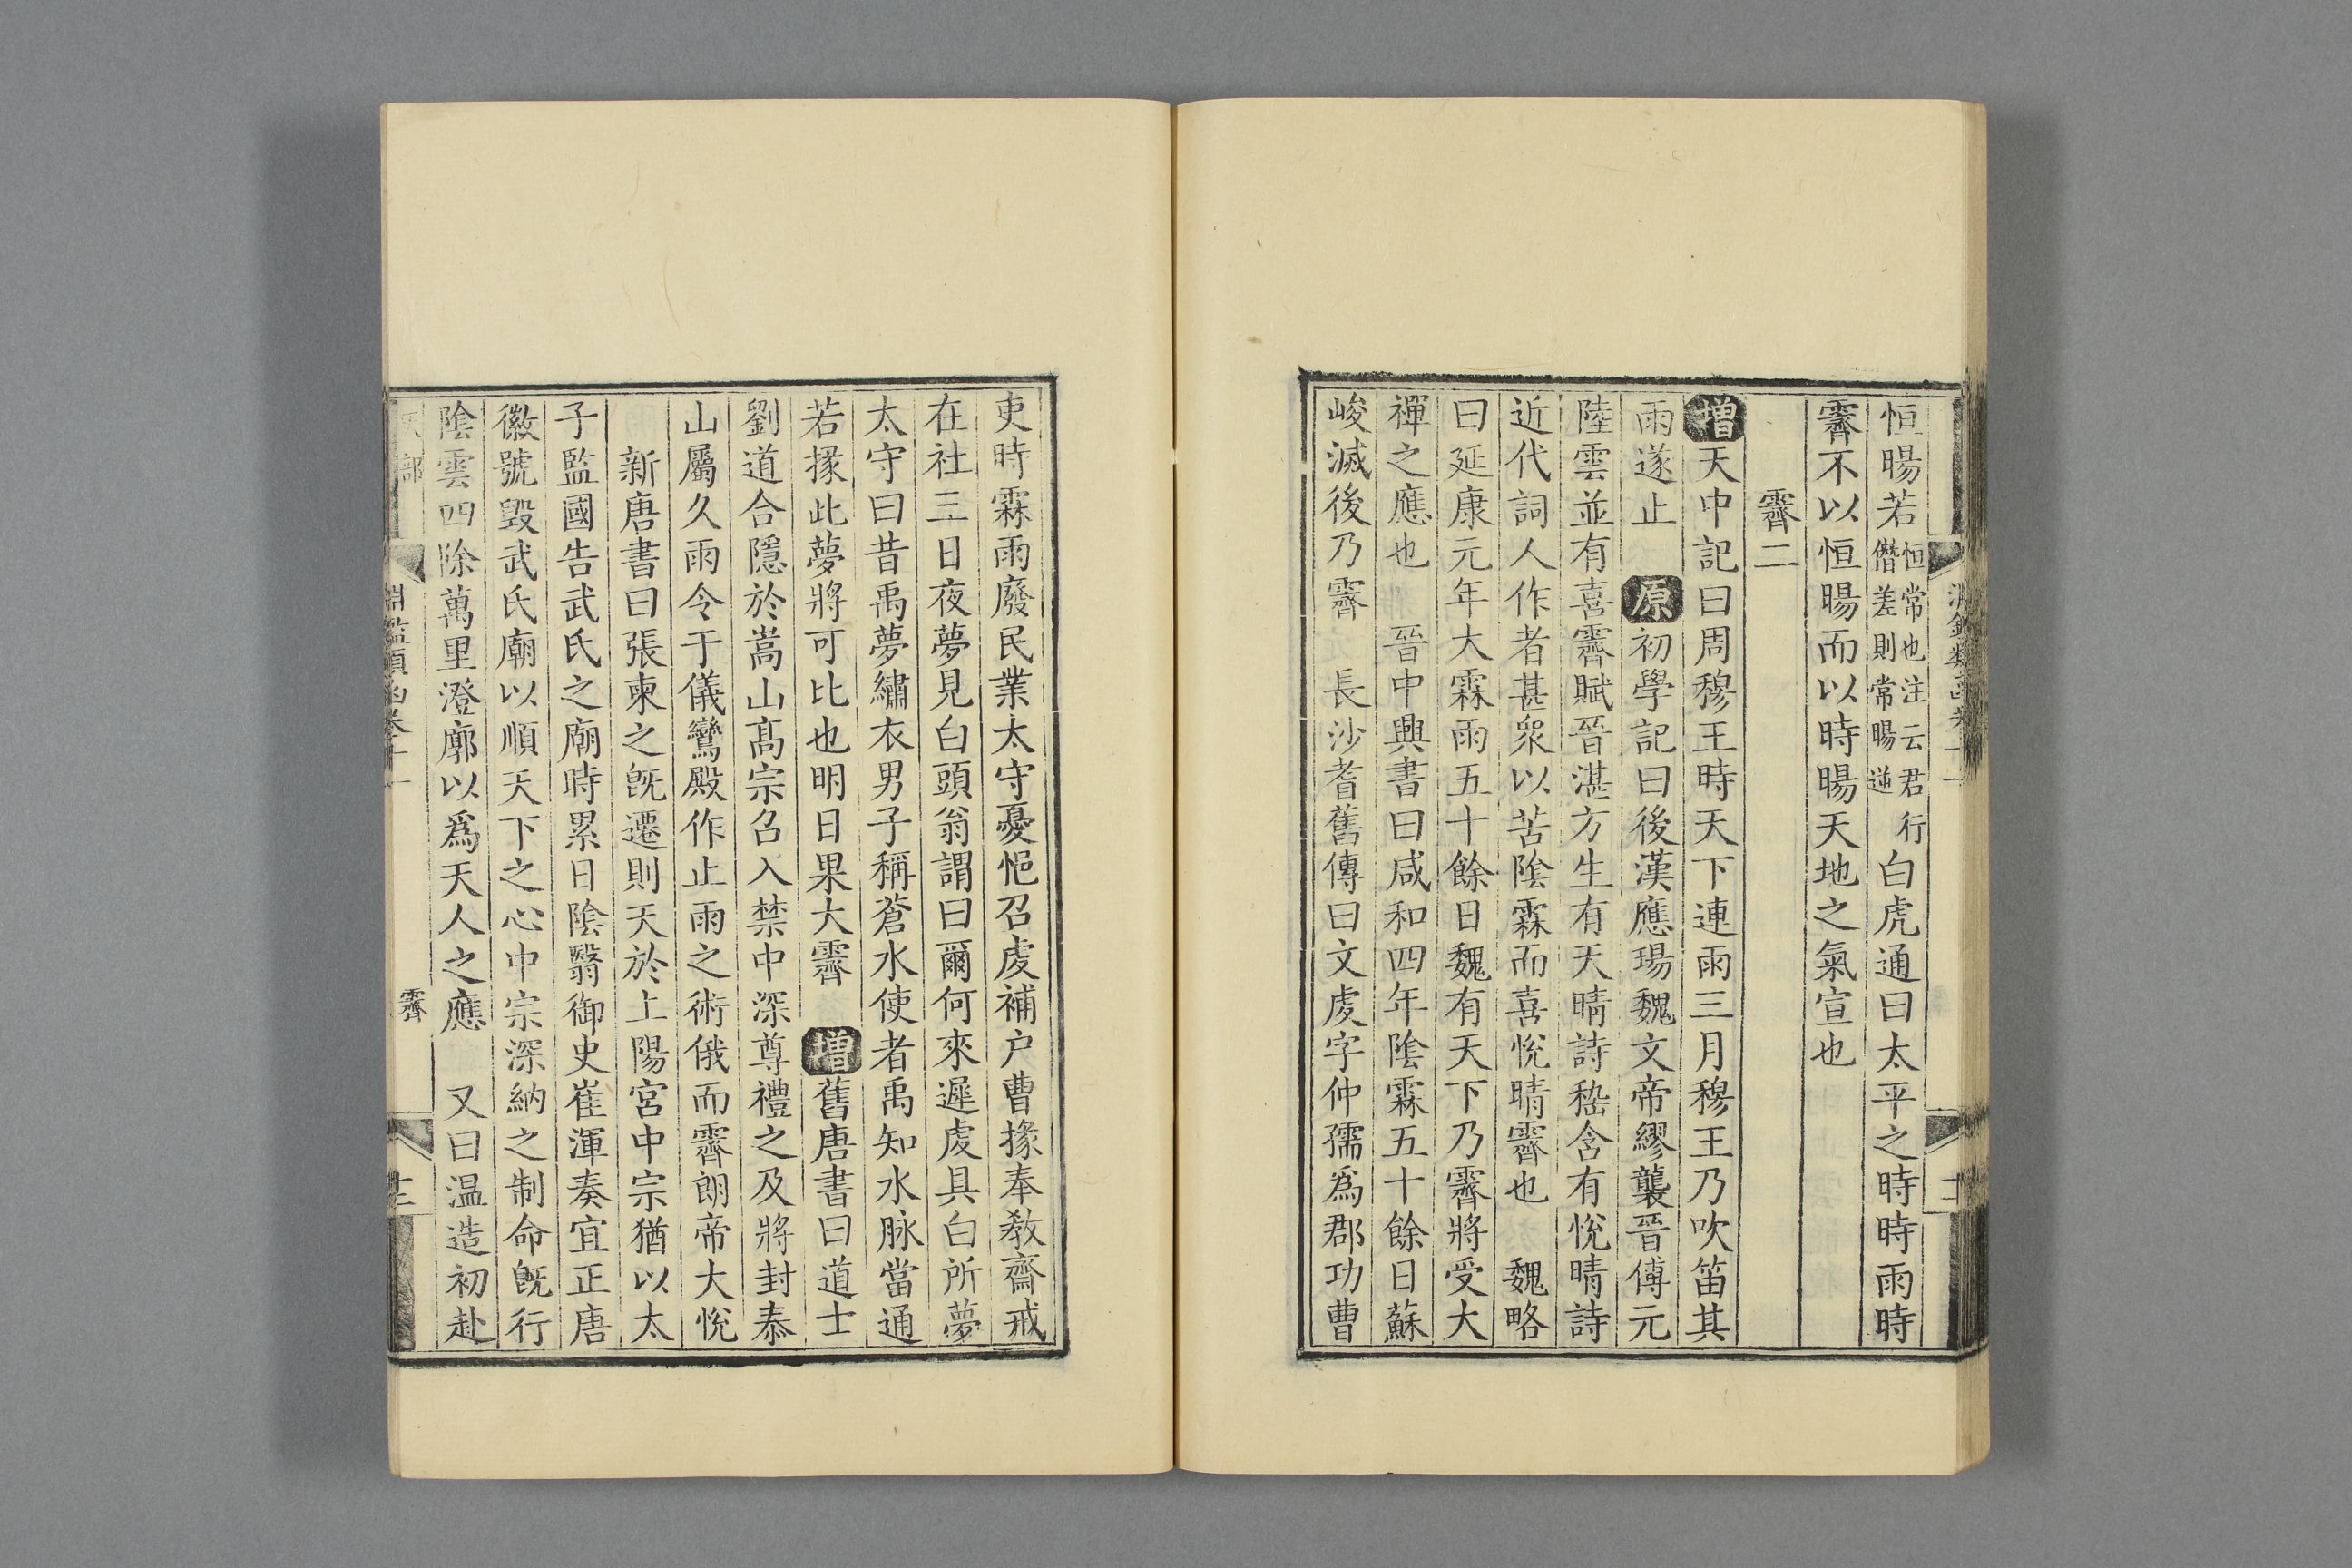 恒暘若恒常也注云君行僭差則常暘逆白虎通曰太平之時時雨時
霽不以恒暘而以時暘天地之氣宣也
霽二
增天中記曰周穆王時天下連雨三月穆王乃吹笛其
雨遂止　原初學記曰後漢應瑒魏文帝繆襲晉傅元
陸雲並有喜霽賦晉湛方生有天晴詩嵇含有悅晴詩
近代詞人作者甚衆以苦陰霖而喜悅晴霽也　魏略
曰延康元年大霖雨五十餘日魏有天下乃霽將受大
禪之應也　晉中興書曰咸和四年陰霖五十餘日蘇
峻滅後乃霽　長沙耆舊傳曰文虔字仲孺爲郡功曹
吏時霖雨廢民業太守憂悒召虔補户曹掾奉教齋戒
在社三日夜夢見白頭翁謂曰爾何來遲虔具白所夢
太守曰昔禹夢繡衣男子稱蒼水使者禹知水脉當通
若掾此夢將可比也明日果大霽　增舊唐書曰道士
劉道合隱於嵩山髙宗召入禁中深尊禮之及將封泰
山屬久雨令于儀鸞殿作止雨之術俄而霽朗帝大悅
新唐書曰張柬之旣遷則天於上陽宮中宗猶以太
子監國告武氏之廟時累日陰翳御史崔渾奏宜正唐
徽號毀武氏廟以順天下之心中宗深納之制命旣行
陰雲四除萬里澄廓以爲天人之應　又曰温造初赴
部
淵鑑類函卷十一
霽